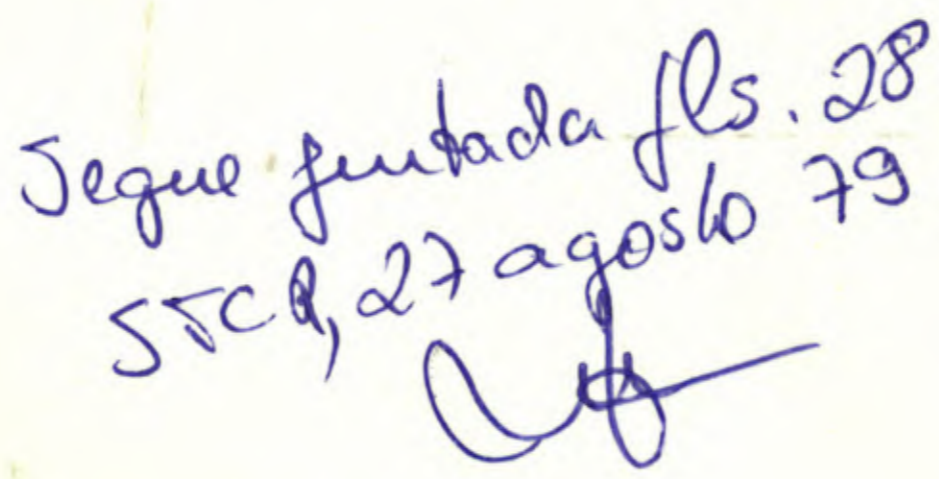 Segue juntada fls. 28
STCR, 27 agosto 79